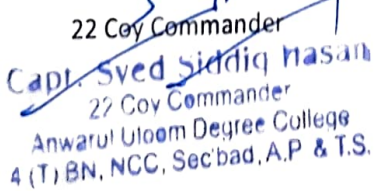 22 Coy Commander
Capt. Syed Siddiq hasan
22 Coy Commander
Anwarul Uloom Degree College
4 (T) BN, NCC, Sec'bad, A.P & T.S.